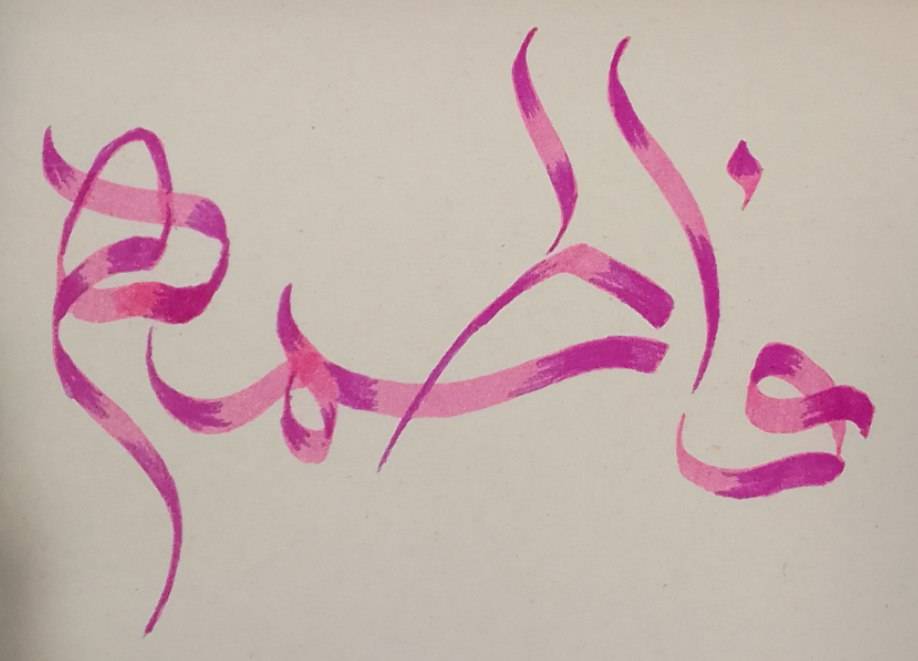 فاطمه